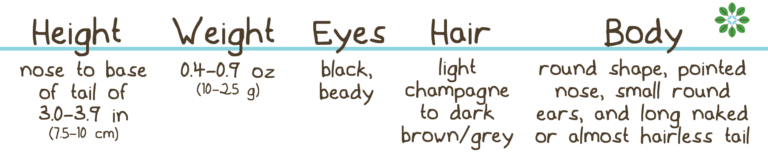 Height
nose to base
of tail of
3.0–3.9 in
(7.5–10 cm)
Weight
0.4–0.9 oz
(10–25 g)
Eyes
black,
beady
Hair
light
champagne
to dark
brown/grey
Body
round shape, pointed
nose, small round
ears, and long naked
or almost hairless tail